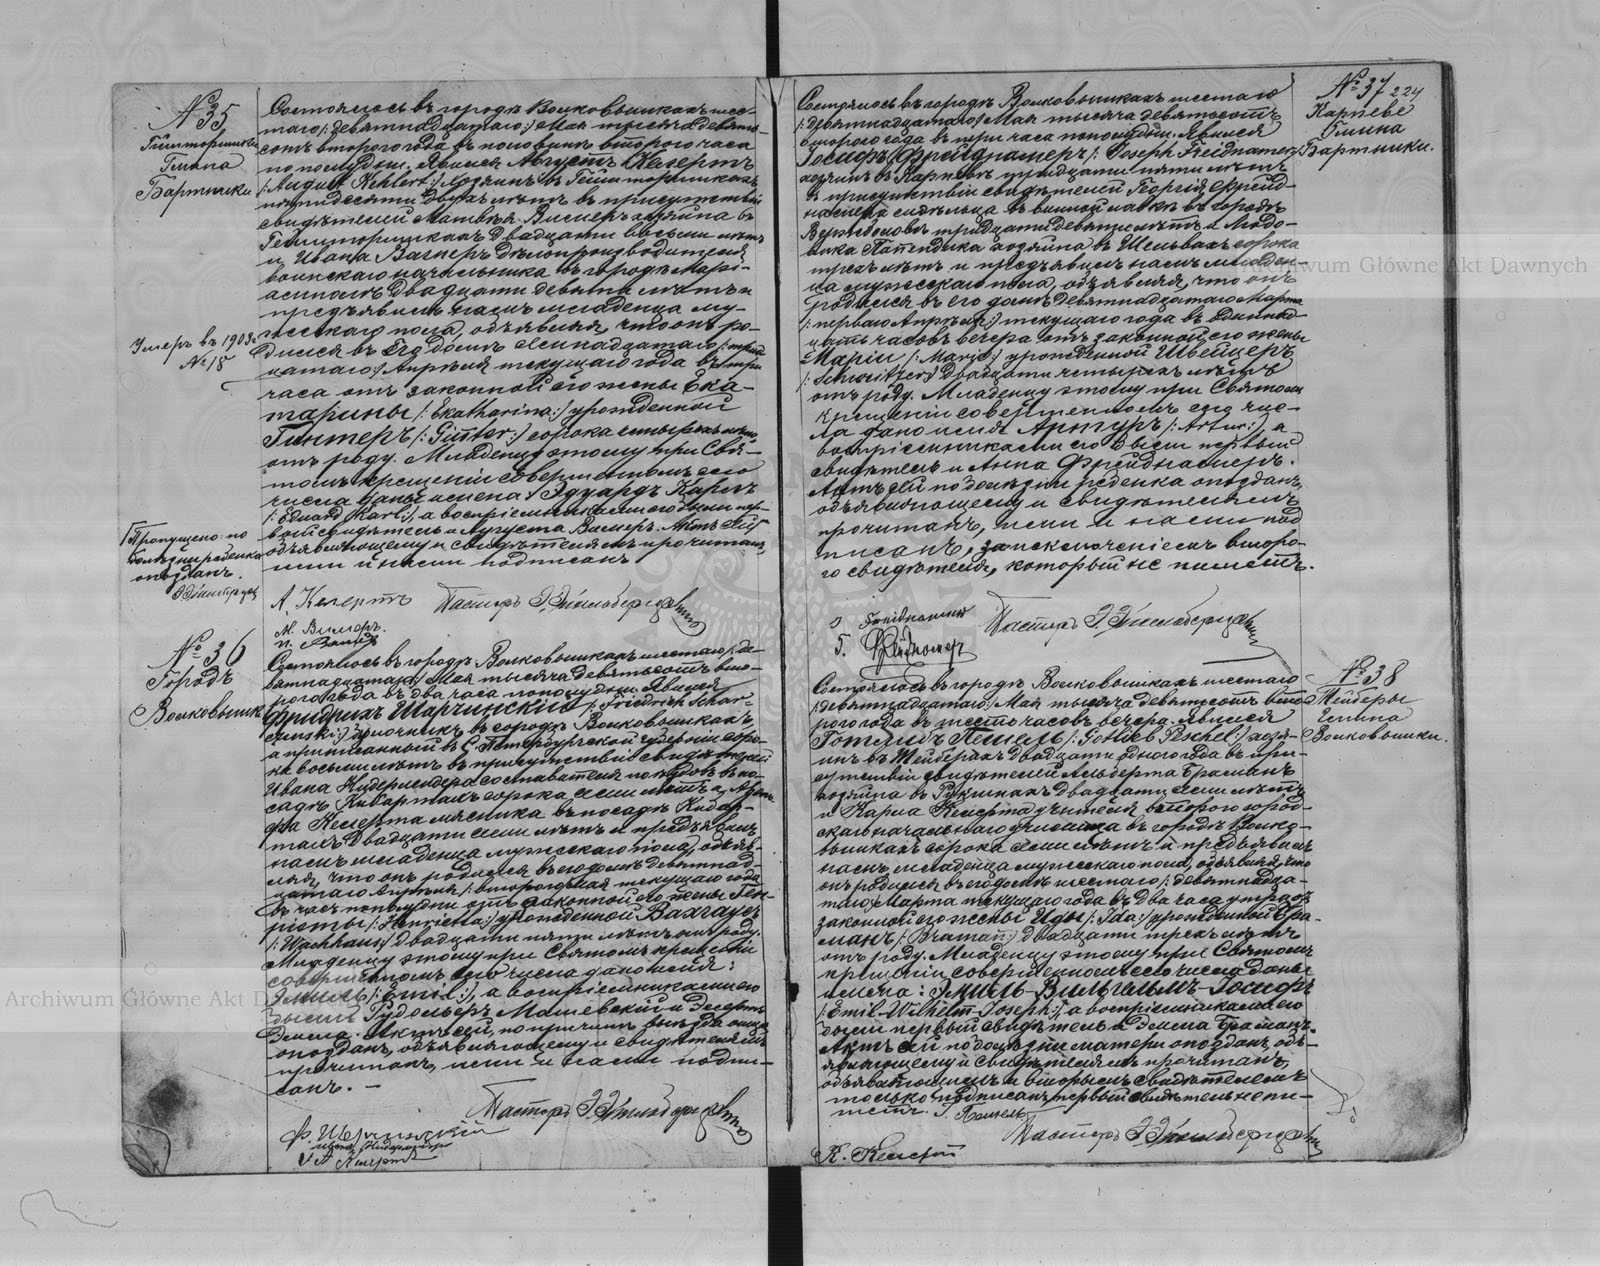 № 35
Гмина
Бартники
Состоялось въ городѣ Волковышкахъ шес-
таго /: девятнадцатаго :/ Мая тысяча девять-
сотъ второго года въ половинѣ второго часа
по полудни. Явился Августъ Келертъ
/: August Kehlert :/ хозяинъ въ
пятидесяти двухъ лѣтъ въ присутствіи
свидѣтелей Матвѣя Вилмеръ хозяина въ
двадцати восьми лѣтъ
и Ивана Вагнеръ дѣлопроизводителя
воинскаго начальника въ городѣ Марі-
амполѣ двадцати девяти лѣтъ и
предъявилъ намъ младенца му-
жескаго пола, объявляя, что онъ ро-
дился въ его домѣ семнадцатаго /: трид-
цатаго :/ Апрѣля текущаго года въ три
часа отъ законной его жены Ека-
тарины /: Ekatharina :/ урожденной
Гинтеръ /: Günter :/ сорока четырехъ лѣтъ
отъ роду. Младенцу этому при Свя-
томъ крещеніи совершенномъ сего
числа даны имена: Эдуардъ Карлъ
/: Eduard Karl :/, а воспріемниками его были пер-
вый свидѣтель и Августа Вилмеръ. Актъ сей
объявляющему и свидѣтелямъ прочитанъ,
ими и нами подписанъ
Умеръ въ 1903 г.
№ 18
Пропущено: по
болѣзни ребенка
опозданъ.
А. Келертъ
Пасторъ
М. Вилмеръ.
И. Вагнеръ
№ 36
Городъ
Волковышки
Состоялось въ городѣ Волковышкахъ шестаго /: де-
вятнадцатаго :/ Мая тысяча девятьсотъ вто-
рого года въ два часа пополудни. Явился
Фридрихъ Шарчинскій /: Friedrich Schar-
cinski :/ въ городѣ Волковышкахъ,
а приписанный въ С. Петербургской губерніи соро-
ка восьми лѣтъ въ присутствіи свидѣтелей
Ивана въ по-
садѣ Кибартахъ сорока семи лѣтъ и
Келерта мясника въ посадѣ Кибар-
тахъ двадцати семи лѣтъ и предъявилъ
намъ младенца мужескаго пола, объяв-
ляя, что онъ родился въ его домѣ девятнад-
цатаго Апрѣля /: второго Мая текущаго года
въ часъ пополудни отъ законной его жены Ген-
ріеты /: Henrietta :/ урожденной Вахгаузъ
/: Wachhaus :/ двадцати пяти лѣтъ отъ роду.
Младенцу этому при Святомъ крещеніи
совершенномъ сего числа дано имя:
Эмиль /: Emil :/, а воспріемниками его
были Машевскій и
Эмма. Актъ сей, по причинѣ выѣзда отца
опозданъ, объявляющему и свидѣтелямъ
прочитанъ, ими и нами подпи-
санъ. —
Пасторъ
Ф. Шарчинскій
А Келертъ
№ 37 224
Карпеве
Гмина
Бартники.
Состоялось въ городѣ Волковышкахъ шестаго
/: девятнадцатаго :/ Мая тысяча девятьсотъ
второго года въ три часа пополудни. Явился
Іосифъ Фрейднамеръ /: Joseph Freidnamer
хозяинъ въ Карпеве тридцати пяти лѣтъ
въ присутствіи свидѣтелей Георгія Фрейд-
намера сидѣльца въ винной лавкѣ въ городѣ
тридцати девяти лѣтъ и Людо-
вика хозяина въ Шельвахъ сорока
трехъ лѣтъ и предъявилъ намъ младен-
ца мужескаго пола, объявляя, что онъ
родился въ его домѣ девятнадцатаго Марта
/: перваго Апрѣля :/ текущаго года въ одиннад-
цать часовъ вечера отъ законной его жены
Маріи /: Marie :/ урожденной Швейцеръ
/: Schweitzer :/ двадцати четырехъ лѣтъ
отъ роду. Младенцу этому при Святомъ
крещеніи совершенномъ сего чис-
ла дано имя Артуръ /: Artur :/, а
воспріемниками его были первый
свидѣтель и Анна Фрейднамеръ.
Актъ сей по болѣзни ребенка опозданъ,
объявляющему и свидѣтелямъ
прочитанъ, ими и нами под-
писанъ, за исключеніемъ второ-
го свидѣтеля, который не пишетъ.
J Freidnamer
Пасторъ
Г. Фрейднамеръ
№ 38
Мейдеры
Гмина
Волковышки.
Состоялось въ городѣ Волковышкахъ шестаго
/: девятнадцатаго :/ Мая тысяча девятьсотъ вто-
рого года въ шесть часовъ вечера. Явился
Готлибъ Пешель /: Gottlieb Peschel :/ хозя-
инъ въ Мейдерахъ двадцати одного года въ при-
сутствіи свидѣтелей Альберта Браманъ
хозяина въ двадцати семи лѣтъ
и Карла Келерта учителя второго город-
скаго начальнаго училища въ городѣ Волко-
вышкахъ сорока семи лѣтъ и предъявилъ
намъ младенца мужескаго пола, объявляя, что
онъ родился въ его домѣ шестаго /: девятнадца-
таго Марта текущаго года въ два часа утра отъ
законной его жены Иды /: Ida :/ урожденной Бра-
манъ /: Bramann :/ двадцати трехъ лѣтъ
отъ роду. Младенцу этому при Святомъ
крещеніи совершенномъ сего числа даны
имена: Эмиль-Вильгельмъ-Іосифъ
/: Emil-Wilhelm-Joseph :/, а воспріемниками его
были первый свидѣтель и Эмма Браманъ.
Актъ сей по болѣзни матери опозданъ, объ-
являющему и свидѣтелямъ прочитанъ,
объявляющимъ и вторымъ свидѣтелемъ
только подписанъ, первый свидѣтель не пи-
шетъ.
Г. Пешель
Пасторъ
К. Келертъ
Archiwum Główne Akt Dawnych
Archiwum Główne Akt D